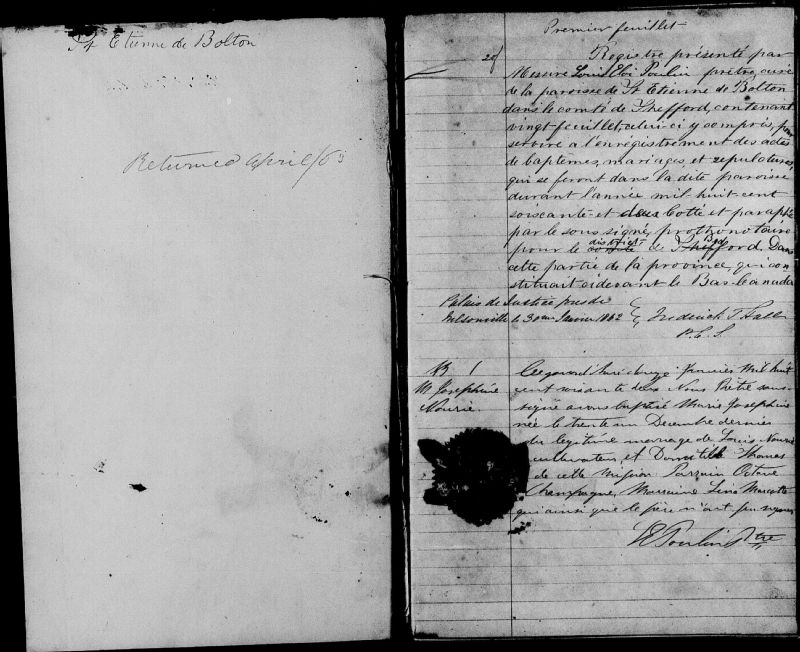 St Etienne de Bolton
Returned April/63
Premier feuillet
20f
Registre présenté par
Messire Louis Eloi Poulin prêtre, curé
de la paroisse de St Etienne de Bolton
dans le comté de Shefford, contenant
vingt feuillet, celui-ci y compris, pour
servir a l'enregistrement des actes
de baptemes, mariages, et sepultures,
qui se feront dans la dite paroisse
durant l'année mil-huit-cent
soiscante-et deux Cotté et paraphé
par le sous signé, prothonotaire
district Bed
pour le comté de Shefford. Dans
cette partie de la province, qui con
stituait cidevant le Bas-Canada
Palais de Justice pres de
Nelsonville le 30me Janvier 1862
Frederick T. Hall
P.C.S.
B 1
M Josephine
Nourie
Ce janvier mil huit
cent soixante deux Nous Prêtre sous-
signé avons baptisé Marie Josephine
née le trente un Decembre dernier
du legitime mariage de Louis Nourie
cultivateur et Domitilde Thomas
de cette mission Parrain Octave
Champagne, Marraine Lina Marcotte
qui ainsi que le père n'ont pu signer
LE Poulin Ptre